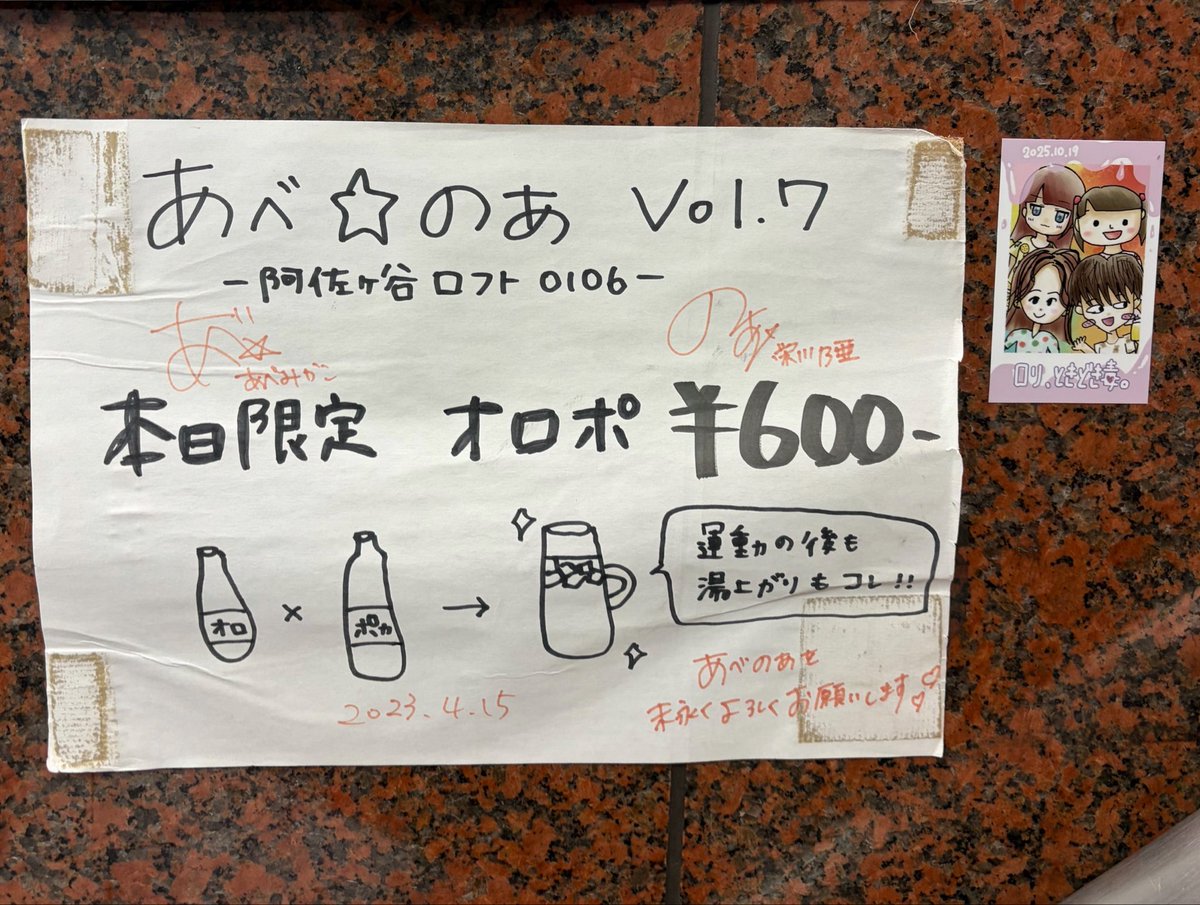 あべ☆のあ Vol.7
-阿佐ヶ谷ロフト0106-
あべみかこ
のあ☆
栄川乃亜
本日限定 オロポ ¥600-
運動の後も
湯上がりもコレ!!
オロ × ポカ →
あべのあを
末永くよろしくお願いします♡♡
2023.4.15
2025.10.19
ロリ、ときどき毒。